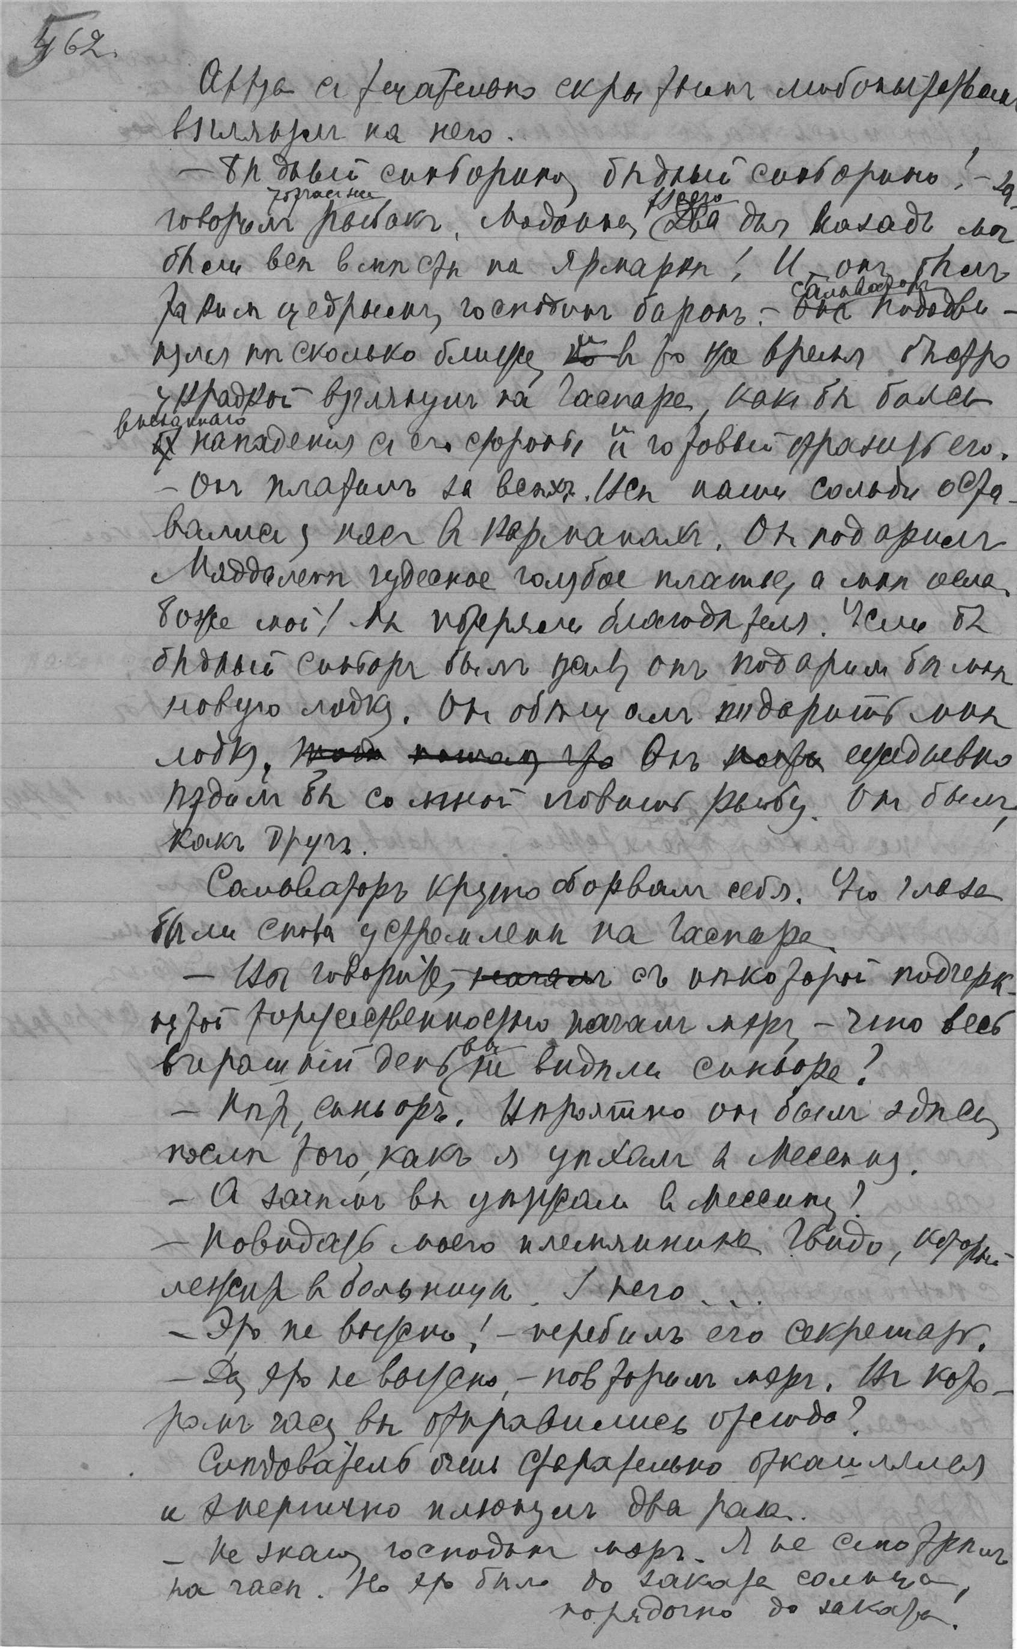 562.
Артур с тщательно скрытым любопытством
взглянул на него.
— Бѣдный синьорино, бѣдный синьорино! — за-
говорилъ рыбакъ. Мадонна, два дня назадъ мы
всего
были всѣ вмѣстѣ на ярмаркѣ! И онъ былъ
такимъ щедрымъ, господинъ баронъ. — Сальваторъ пододви-
нулся нѣсколько ближе, и въ то же время быстро
украдкой взглянулъ на Гаспаре, какъ бы боясь
внезапнаго
нападенія съ его стороны и готовый отразить его.
— Онъ платилъ за всѣхъ. Всѣ наши сольди оста-
вались у насъ въ карманахъ. Онъ подарилъ
Маддаленѣ чудесное голубое платье, а мнѣ осла.
Боже мой! Мы потеряли благодѣтеля. Если бы
бѣдный синьоръ былъ живъ, онъ подарилъ бы мнѣ
новую лодку. Онъ обѣщалъ подарить мнѣ
лодку. Онъ ежедневно
ѣздилъ бы со мной ловить рыбу. Онъ былъ,
какъ другъ.
Сальваторъ круто оборвалъ себя. Его глаза
были снова устремлены на Гаспаре.
— Вы говорите, — съ нѣкоторой подчерк-
нутой торжественностью началъ мэръ, — что весь
вчерашній день вы не видѣли синьора?
— Нѣтъ, синьоръ. Вѣроятно онъ былъ здѣсь,
послѣ того, какъ я уѣхалъ в Мессину.
— А зачѣмъ вы уѣзжали в Мессину?
— Повидать моего племянника Гвидо, который
лежитъ в больницѣ. У него . . .
— Это не важно! — перебилъ его секретарь.
— Да, это не важно, — повторилъ мэръ. Въ кото-
ромъ часу вы отправились отсюда?
Слѣдователь очень старательно откашлялся
и энергично плюнулъ два раза.
— Не знаю, господинъ мэръ. Я не смотрѣлъ
на часы. Но это было до заката солнца,
порядочно до заката.